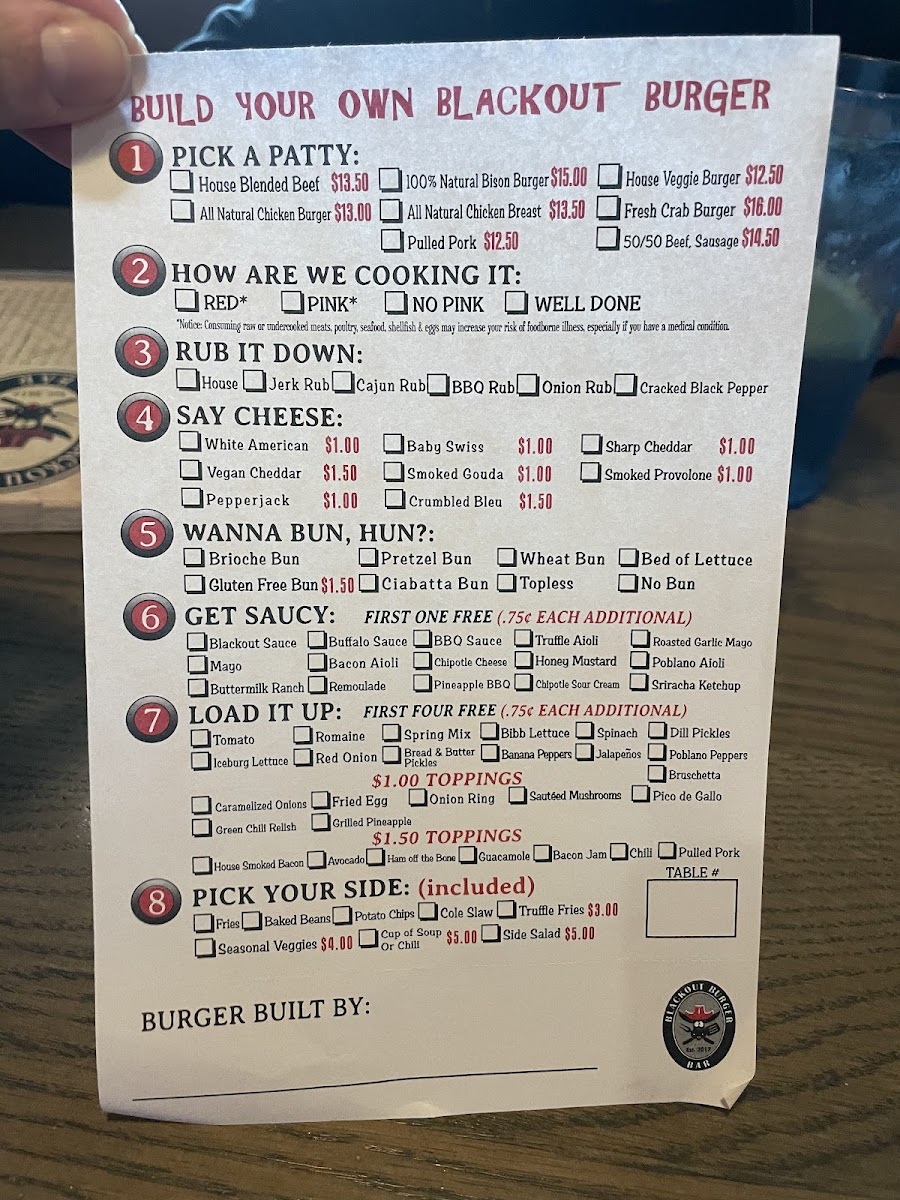 BUILD YOUR OWN BLACKOUT BURGER
1 PICK A PATTY:
House Blended Beef $13.50 100% Natural Bison Burger $15.00 House Veggie Burger $12.50
All Natural Chicken Burger $13.00 All Natural Chicken Breast $13.50 Fresh Crab Burger $16.00
Pulled Pork $12.50 50/50 Beef, Sausage $14.50
2 HOW ARE WE COOKING IT:
RED* PINK* NO PINK WELL DONE
*Notice: Consuming raw or undercooked meats, poultry, seafood, shellfish & eggs may increase your risk of foodborne illness, especially if you have a medical condition.
3 RUB IT DOWN:
House Jerk Rub Cajun Rub BBQ Rub Onion Rub Cracked Black Pepper
4 SAY CHEESE:
White American $1.00 Baby Swiss $1.00 Sharp Cheddar $1.00
Vegan Cheddar $1.50 Smoked Gouda $1.00 Smoked Provolone $1.00
Pepperjack $1.00 Crumbled Bleu $1.50
5 WANNA BUN, HUN?:
Brioche Bun Pretzel Bun Wheat Bun Bed of Lettuce
Gluten Free Bun $1.50 Ciabatta Bun Topless No Bun
6 GET SAUCY: FIRST ONE FREE (.75¢ EACH ADDITIONAL)
Blackout Sauce Buffalo Sauce BBQ Sauce Truffle Aioli Roasted Garlic Mayo
Mayo Bacon Aioli Chipotle Cheese Honey Mustard Poblano Aioli
Buttermilk Ranch Remoulade Pineapple BBQ Chipotle Sour Cream Sriracha Ketchup
7 LOAD IT UP: FIRST FOUR FREE (.75¢ EACH ADDITIONAL)
Tomato Romaine Spring Mix Bibb Lettuce Spinach Dill Pickles
Iceburg Lettuce Red Onion Bread & Butter Pickles Banana Peppers Jalapeños Poblano Peppers
$1.00 TOPPINGS Bruschetta
Caramelized Onions Fried Egg Onion Ring Sautéed Mushrooms Pico de Gallo
Green Chili Relish Grilled Pineapple
$1.50 TOPPINGS
House Smoked Bacon Avocado Ham off the Bone Guacamole Bacon Jam Chili Pulled Pork
8 PICK YOUR SIDE: (included) TABLE #
Fries Baked Beans Potato Chips Cole Slaw Truffle Fries $3.00
Seasonal Veggies $4.00 Cup of Soup Or Chili $5.00 Side Salad $5.00
BURGER BUILT BY:
BLACKOUT BURGER
Est. 2012
BAR